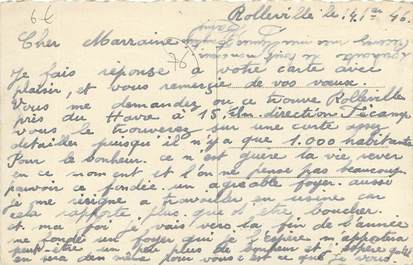 6€
Rolleville le 1er 46
Cher Marraine
Je fais réponse à votre carte avec
plaisir, et vous remercie de vos vœux.
Vous me demandez ou ce trouve Rolleville
près du Havre à 15 Klm. direction Fécamp
vous le trouverez sur une carte assez
detailler puisqu'il n'y a que 1.000 habitants
Pour le bonheur. ce n'est guère la vie rever
en ce moment et l'on ne pense pas beaucoup
pouvoir ce fondée un agreable foyer. aussi
je me résigne a travailler en usine car
cela rapporte plus que d'être boucher.
et ma foi je vais vers la fin de l'année
me fonder un foyer qui je l'espère m'apportera
peut-être un peu plus de bonheur et j'espère qu'il
en sera de même pour vous c'est ce que je vous